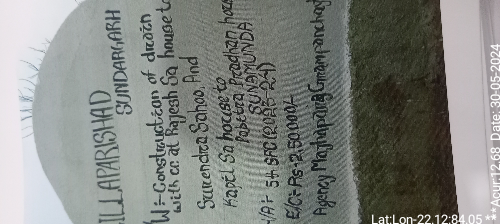 ILLAPARISHAD
SUNDARGARH
W:- Construction of drain
with cc at Rajesh Sa house to
Surendra Sahoo, And
Kapil Sa house to
Pabitra Pradhan house
SUNAMUNDA
5th SFC
E/C:- Rs-2,50,000/-
Agency Majhapara Grampanchayat
Lat:Lon-22,12:84,05
Date: 30-05-2024